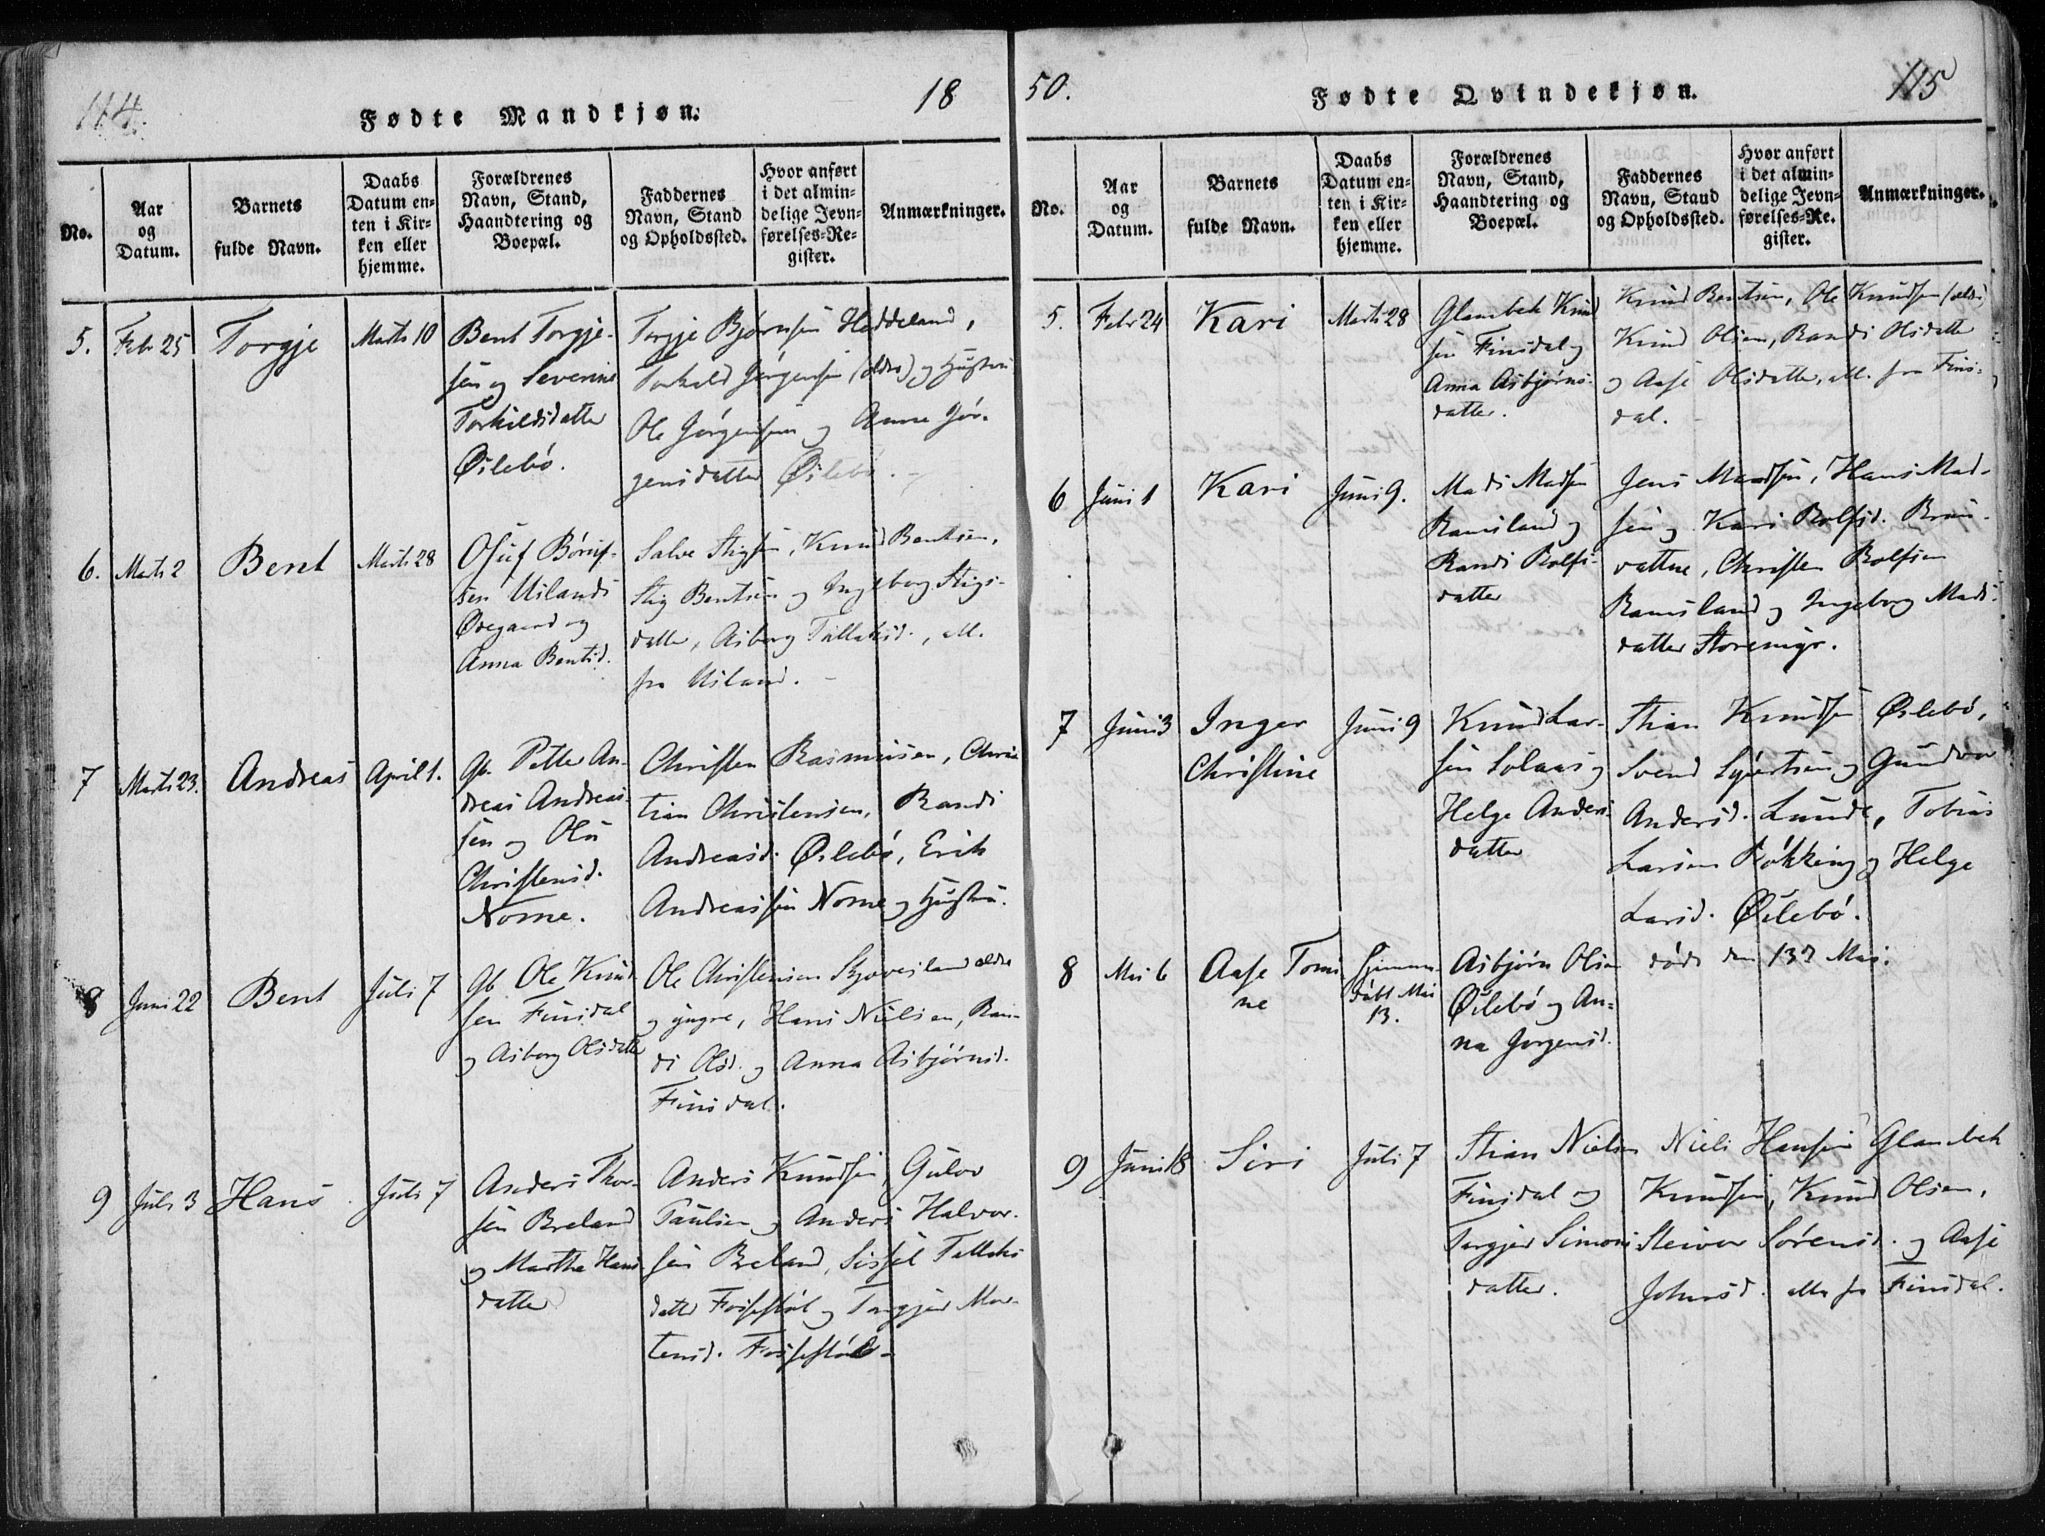 114.
18
Fødte Mandkjøn.
No.
Aar
og
Datum.
Barnets
fulde Navn.
Daabs
Datum en-
ten i Kir-
ken eller
hjemme.
Forældrenes
Navn, Stand,
Haandtering og
Boepæl.
Faddernes
Navn, Stand
og Opholdssted.
Hvor anført
i det almin-
delige Jevn-
førelses-Re-
gister.
Anmærkninger.
5.
Febr 25
Torgje
Marts 10
Bent Torgje-
sen og Severine
Torkildsdatter
Øilebö.
Torgje Bjørnsen Heddeland,
Torkeld Jørgensen (ældre) og Hustru
Ole Jörgensen og Anne Jör-
gensdatter Øilebö.
6.
Marts 2
Bent
Marts 28
Osuf Børuf-
sen Usland
Øvegaard og
Anna Bentsd.
Salve Stigsen, Knud Bentsen,
Stig Bentsen og Ingeborg Stigs-
datter, Asborg Tallaksd., all.
fra Usland.
7
Marts 23.
Andreas
April 1.
Gb. Petter An-
dreas Andreas-
sen og Olu
Christensd.
Nome.
Christen Rasmussen, Chris
tian Christensen, Randi
Andreasd. Øilebö, Erik
Andreassen Nome og Hustru.
8
Juni 22
Bent
Juli 7
Gb Ole Knud-
sen Finsdal
og Asborg Olsdatter
Ole Christensen Skjævesland ældre
og yngre, Hans Nielsen, Ran-
di Olsd. og Anna Asbjörnsd.
Finsdal.
9
Juli 3
Hans
Juli 7
Anders Thor-
sen Breland
og Martha Hans
datter
Anders Knudsen, Gulov
Paulsen og Anders Halvor-
sen Breland, Sissel Tallaks
datter Fossestöl og Torgjer Mor-
tensd. Fossestöl-
50.
115
Fødte Qvindekjøn.
No.
Aar
og
Datum.
Barnets
fulde Navn.
Daabs
Datum en-
ten i Kir-
ken eller
hjemme.
Forældrenes
Navn, Stand,
Haandtering og
Boepæl.
Faddernes
Navn, Stand
og Opholdssted.
Hvor anført
i det almin-
delige Jevn-
førelses-Re-
gister.
Anmærkninger.
5.
Febr 24
Kari
Marts 28
Glambek Knud
sen Finsdal og
Anna Asbjørns-
datter.
Knud Bentsen, Ole Knudsen (ældre)
Knud Olsen, Randi Olsdatter
og Aase Olsdatter, all. fra Fins-
dal.
6
Juni 1
Kari
Juni 9.
Mads Madsen
Ramsland og
Randi Rolfs-
datter
Jens Madsen, Hans Mad-
sen og Kari Rolfsd. Brun-
vattne, Christen Rolfsen
Ramsland og Ingeborg Mads-
datter Storenigr.
7
Juni 3
Inger
Christine
Juni 9
Knud Lar-
sen Solaas og
Helge Anders-
datter
Stian Knudsen Øslebö,
Svend Syvertsen og Gundvor
Andersd. Lunde, Tobias
Larsen Rökking og Helge
Larsd. Øilebö.
8
Mai 6
Aase Tomi
ne
Hjemme-
döbt Mai
13.
Asbjørn Olsen
Øilebö og An-
na Jørgensd.
døde den 13d Mai.
9
Juni 18
Siri
Juli 7
Stian Nielsen
Finsdal og
Torgjer Simons
datter.
Niels Hansen Glambek
Knudsen, Knud Olsen,
Steivor Sörensd. og Aase
Johnsd. alle fra Finsdal.